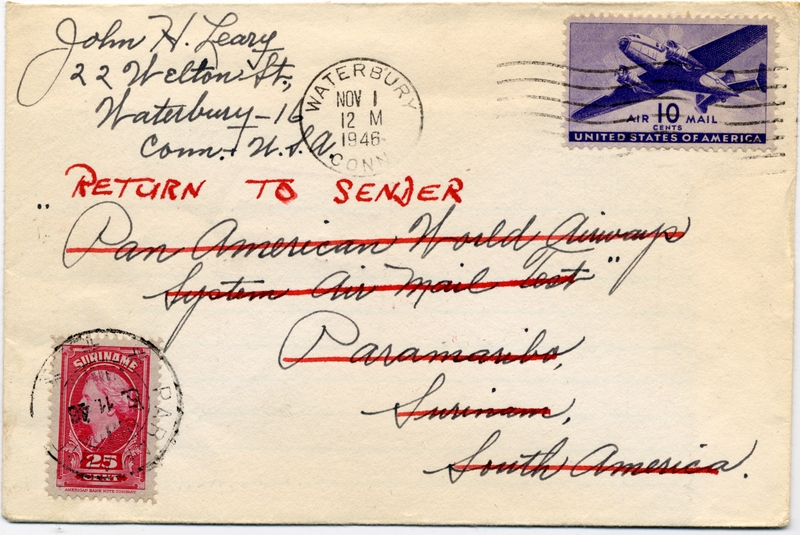 John H. Leary
22 Welton St.,
Waterbury-16
Conn., U.S.A.
WATERBURY
NOV 1
12 M
1946
CONN.
AIR 10 MAIL
CENTS
UNITED STATES OF AMERICA
RETURN TO SENDER
"Pan American World Airways
System Air Mail Test"
Paramaribo,
Surinam,
South America.
SURINAME
25
CENT
AMERICAN BANK NOTE COMPANY